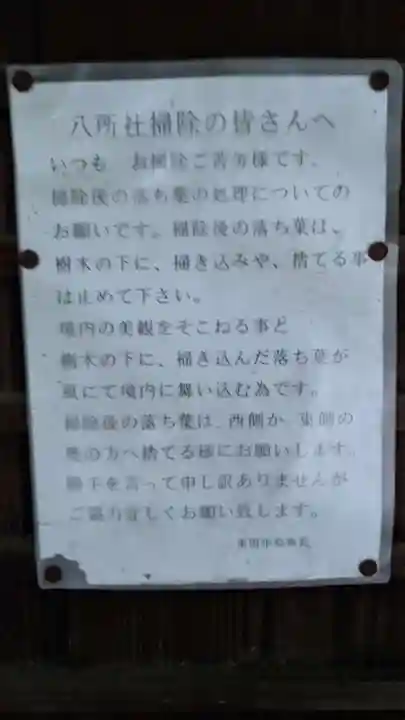 八所社掃除の皆さんへ
いつも お掃除ご苦労様です。
掃除後の落ち葉の処理についての
お願いです。掃除後の落ち葉は、
樹木の下に、掃き込みや、捨てる事
は止めて下さい。
境内の美観をそこねる事と
樹木の下に、掃き込んだ落ち葉が
風にて境内に舞い込む為です。
掃除後の落ち葉は、西側か、東側の
奥の方へ捨てる様にお願いします。
勝手を言って申し訳ありませんが
ご協力宜しくお願い致します。